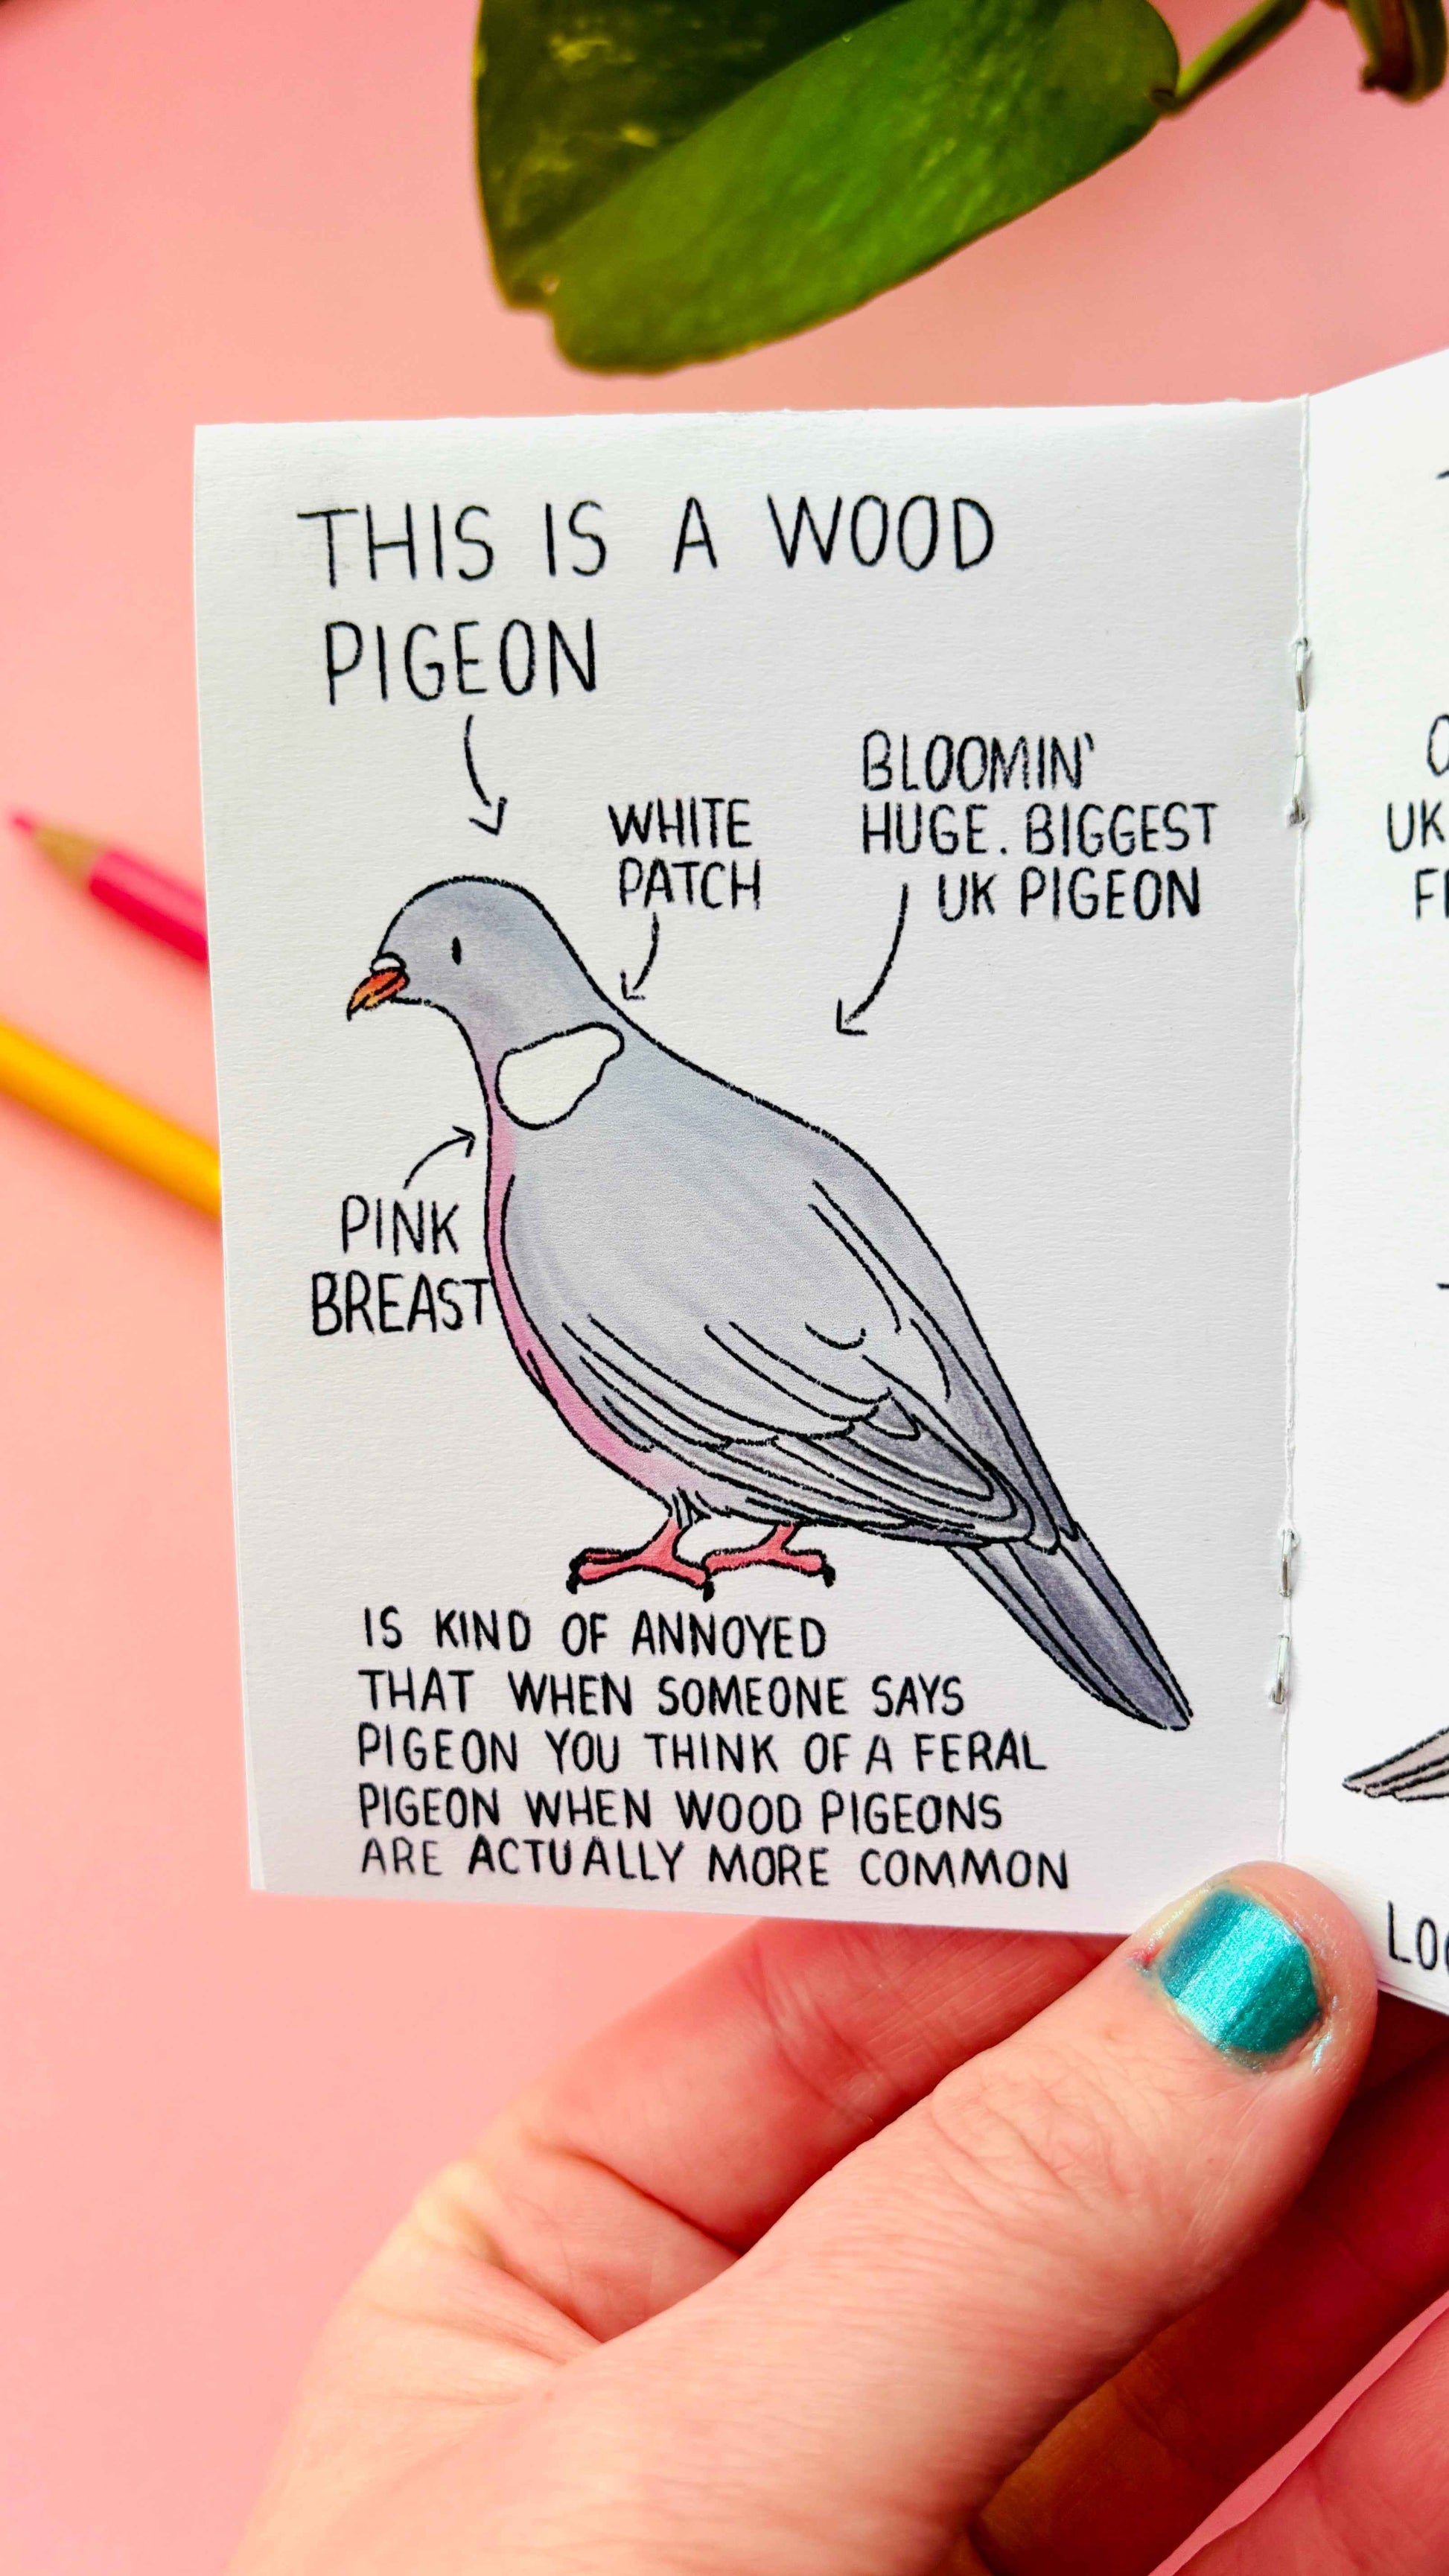 THIS IS A WOOD
PIGEON
WHITE
PATCH
BLOOMIN'
HUGE. BIGGEST
UK PIGEON
PINK
BREAST
IS KIND OF ANNOYED
THAT WHEN SOMEONE SAYS
PIGEON YOU THINK OF A FERAL
PIGEON WHEN WOOD PIGEONS
ARE ACTUALLY MORE COMMON
UK